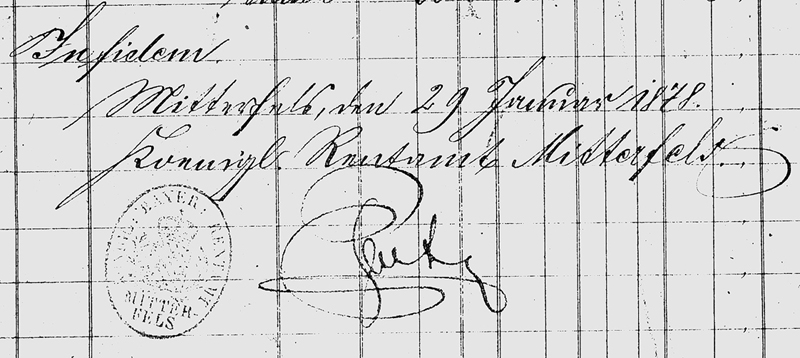 In fidem.
Mitterfels, den 29 Januar 1878.
Koenigl. Rentamt Mitterfels.
BAYER: RENTAMT
MITTER-
FELS